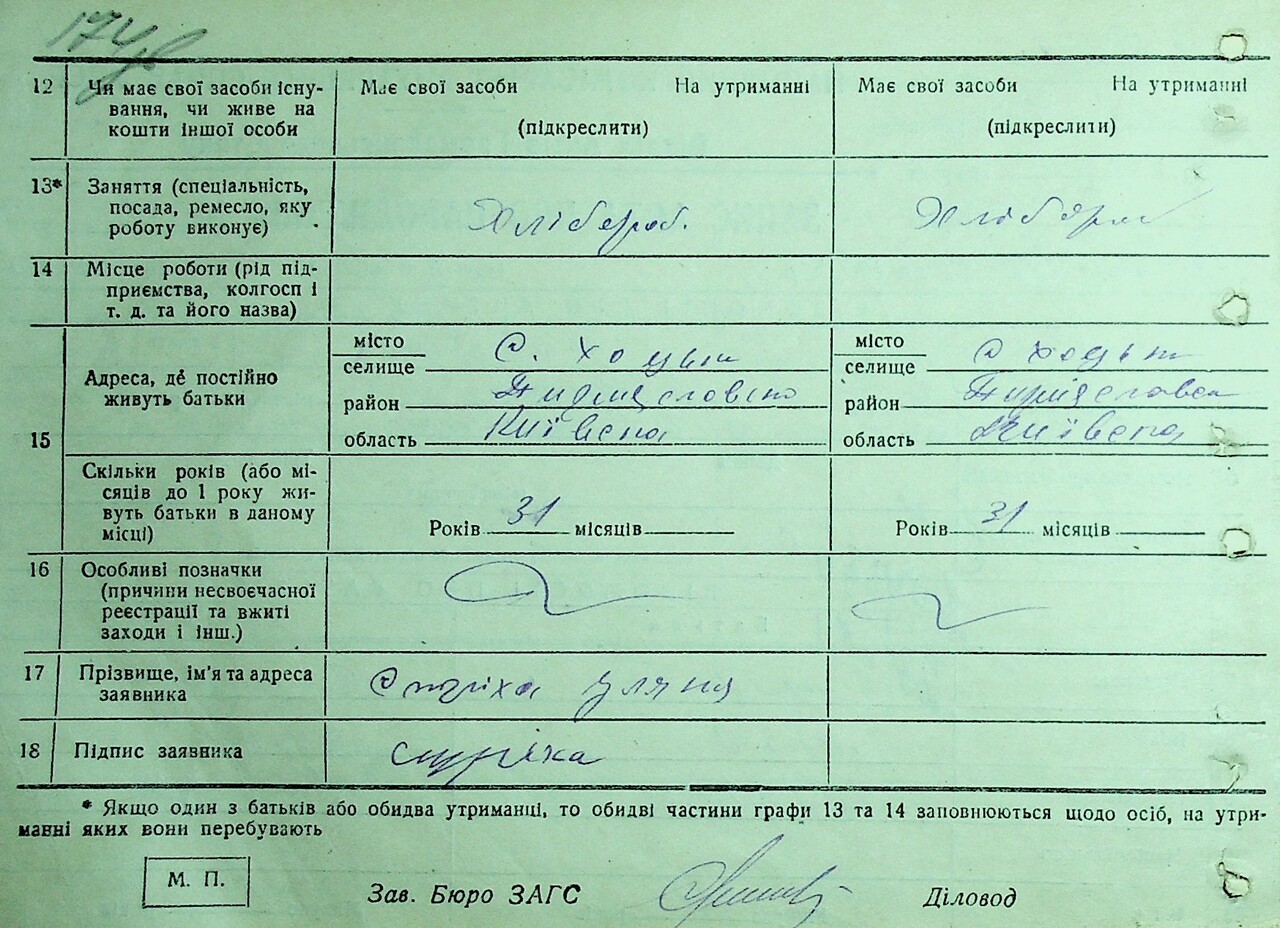 12 Чи має свої засоби існу-
вання, чи живе на
кошти іншої особи
Має свої засоби На утриманні
(підкреслити)
Має свої засоби На утриманні
(підкреслити)
13* Заняття (спеціальність,
посада, ремесло, яку
роботу виконує)
Хлібороб.
Хлібороб
14 Місце роботи (рід під-
приємства, колгосп і
т. д. та його назва)
15
Адреса, де постійно
живуть батьки
місто
селище С. Хоцьки
район
область Київська
місто
селище С Хоцьки
район
область Київська
Скільки років (або мі-
сяців до 1 року жи-
вуть батьки в даному
місці)
Років 31 місяців
Років 31 місяців
16 Особливі позначки
(причини несвоєчасної
реєстрації та вжиті
заходи і інш.)
17 Прізвище, ім'я та адреса
заявника
Уляна
18 Підпис заявника
* Якщо один з батьків або обидва утриманці, то обидві частини графи 13 та 14 заповнюються щодо осіб, на утри-
манні яких вони перебувають
М. П.
Зав. Бюро ЗАГС Діловод